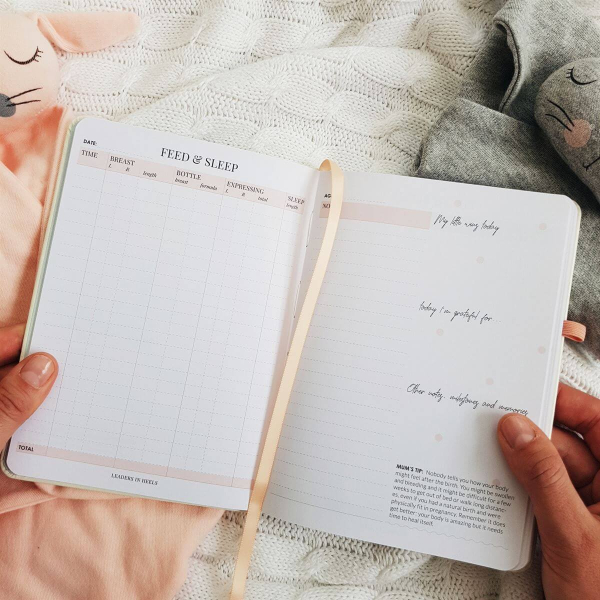 DATE:
FEED & SLEEP
TIME BREAST BOTTLE EXPRESSING SLEEP
L R length breast formula L R total length
TOTAL
LEADERS IN HEELS
My little wins today
today i'm grateful for
Other notes, milestones and memories
MUM'S TIP: Nobody tells you how your body
might feel after the birth. You might be swollen
and bleeding and it might be difficult for a few
weeks to get out of bed or walk long distanc-
es, even if you had a natural birth and were
physically fit in pregnancy. Remember it does
get better: your body is amazing but it needs
time to heal itself.